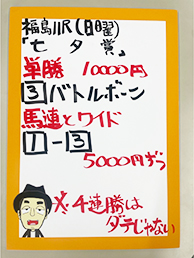 福島11R(日曜)
「七夕賞」
単勝 10000円
③バトルボーン
馬連とワイド
①-③
5000円ずつ
※4連勝は
ダテじゃない